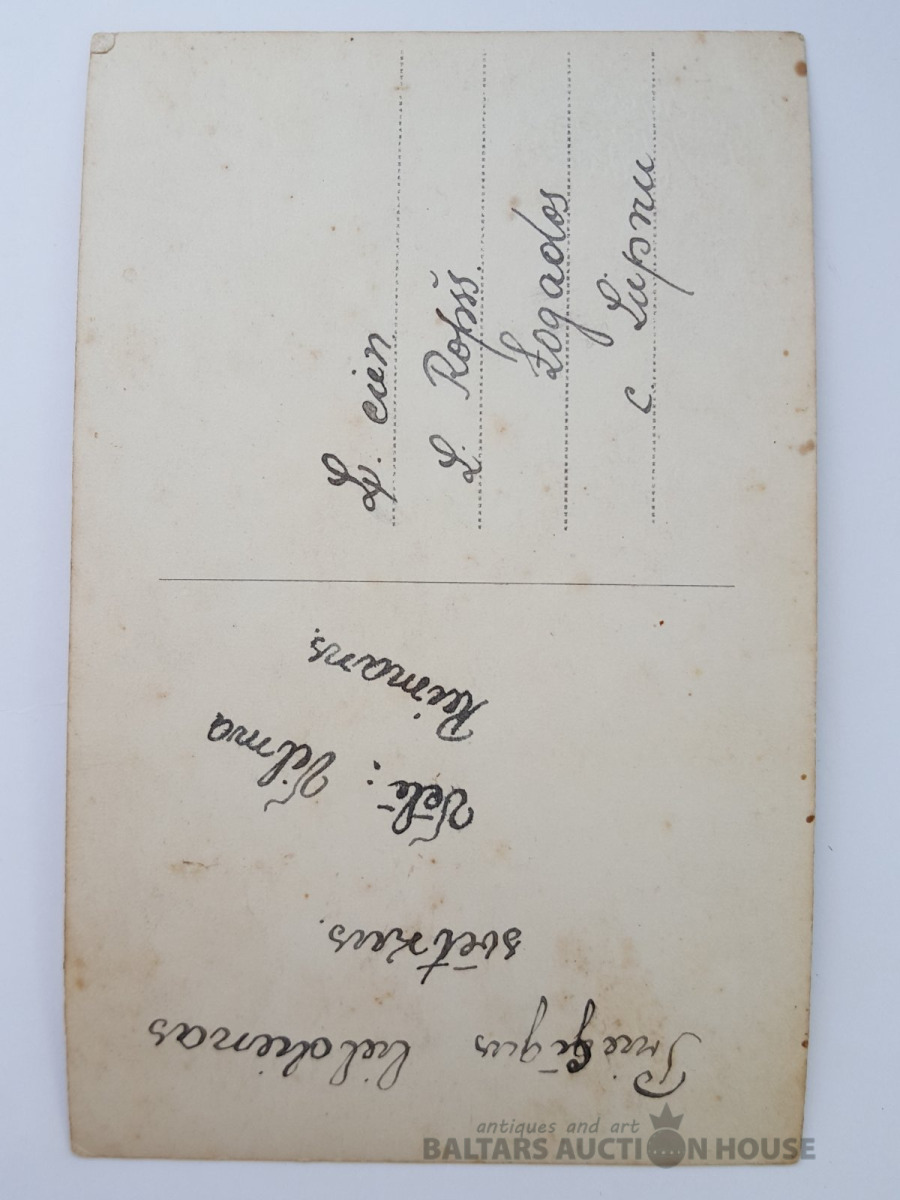 Priecīgus lieldienas
svētkus.
Vēlē: Vilma
Reimans.
Ļ. cien.
L.
Logados
c. Liepnu
antiques and art
BALTARS AUCTION HOUSE